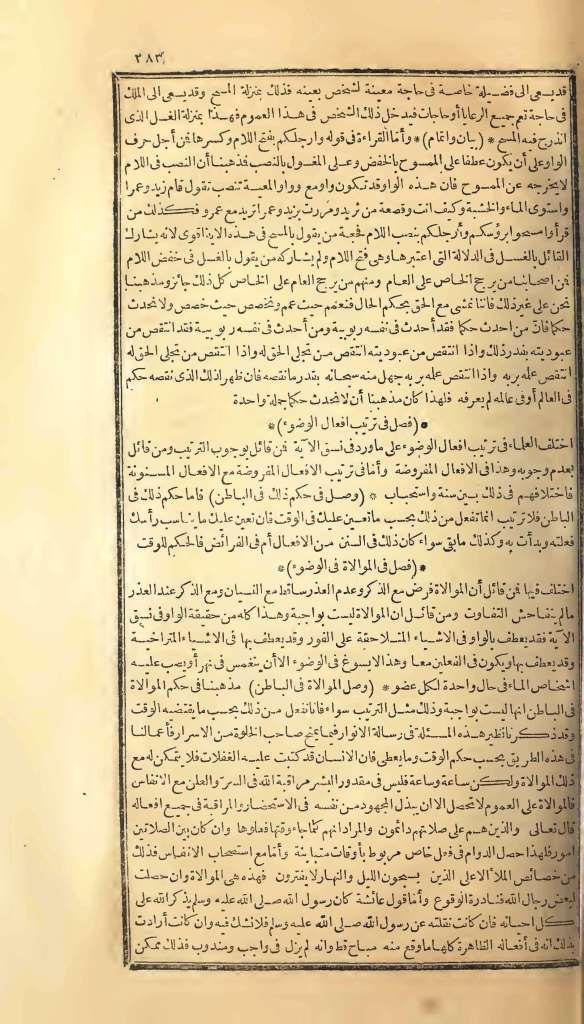 ٣٨٣
قد يدعى الى فضيلة خاصة فى حاجة معينة لشخص بعينه فذلك بمنزلة المسح وقد يدعى الى الملك
فى حاجة تعم جميع الرعايا أو حاجات فيدخل ذلك الشخص فى هذا العموم فهذا بمنزلة الغسل الذى
اندرج فيه المسح * (بيان واتمام) * وأما القراءة فى قوله وأرجلكم بفتح اللام وكسرها فمن أجل حرف
الواو على أن يكون عطفا على الممسوح بالخفض وعلى المغسول بالنصب فمذهبنا أن النصب فى اللام
لا يخرجه عن الممسوح فان هذه الواو قد تكون واو مع وواو المعية تنصب تقول قام زيد وعمرا
واستوى الماء والخشبة وكيف أنت وقصعة من ثريد ومررت بزيد وعمرا تريد مع عمرو فكذلك من
قرأ وامسحوا برؤسكم وأرجلكم بنصب اللام فحجة من يقول بالمسح فى هذه الآية أقوى لانه يشارك
القائل بالغسل فى الدلالة التى اعتبرها وهى فتح اللام ولم يشاركه من يقول بالغسل فى خفض اللام
فمن أصحابنا من يرجح الخاص على العام ومنهم من يرجح العام على الخاص كل ذلك جائز ومذهبنا
نحن على غير ذلك فاننا نمشى مع الحق بحكم الحال فنعمم حيث عمم ونخصص حيث خصص ولا نحدث
حكما فان من احدث حكما فقد أحدث فى نفسه ربوبية ومن أحدث فى نفسه ربوبية فقد انتقص من
عبوديته بقدر ذلك واذا انتقص من عبوديته انتقص من تجلى الحق له واذا انتقص من تجلى الحق له
انتقص علمه بربه واذا انتقص علمه بربه جهل منه سبحانه بقدر ما نقصه فان ظهر لذلك الذى نقصه حكم
فى العالم أو فى عالمه لم يعرفه فلهذا كان مذهبنا أن لا نحدث حكما جملة واحدة
* (فصل فى ترتيب افعال الوضوء) *
اختلف العلماء فى ترتيب افعال الوضوء على ما ورد فى نسق الآية فمن قائل بوجوب الترتيب ومن قائل
بعدم وجوبه وهذا فى الافعال المفروضة وأما فى ترتيب الافعال المفروضة مع الافعال المسنونة
فاختلافهم فى ذلك بين سنة واستحباب * (وصل فى حكم ذلك فى الباطن) فاما حكم ذلك فى
الباطن فلا ترتيب انما تفعل من ذلك بحسب ما تعين عليك فى الوقت فان تعين عليك ما يناسب رأسك
فعلته وبدأت به وكذلك ما بقى سواء كان ذلك فى السنن من الافعال أم فى الفرائض فالحكم للوقت
* (فصل فى الموالاة فى الوضوء) *
اختلف فيها فمن قائل أن الموالاة فرض مع الذكر وعدم العذر ساقط مع النسيان ومع الذكر عند العذر
ما لم يتفاحش التفاوت ومن قائل ان الموالاة ليست بواجبة وهذا كله من حقيقة الواو فى نسق
الآية فقد يعطف بالواو فى الاشياء المتلاحقة على الفور وقد يعطف بها فى الاشياء المتراخية
وقد يعطف بها ويكون فى الفعلين معا وهذا لا يسوغ فى الوضوء الا أن ينغمس فى نهر أو يصب عليه
اشخاص الماء فى حال واحدة لكل عضو * (وصل الموالاة فى الباطن) مذهبنا فى حكم الموالاة
فى الباطن انها ليست بواجبة وذلك مثل الترتيب سواء فاننا نفعل من ذلك بحسب ما يقتضيه الوقت
وقد ذكرنا نظير هذه المسئلة فى رسالة الانوار فيما يمنح صاحب الخلوة من الاسرار فأعمالنا
فى هذه الطريق بحسب حكم الوقت وما يعطى فان الانسان قد كتبت عليه الغفلات فلا يتمكن له مع
ذلك الموالاة ولكن ساعة وساعة فليس فى مقدور البشر مراقبة الله فى السر والعلن مع الانفاس
فالموالاة على العموم لا تحصل الا ان يبذل المجهود من نفسه فى الاستحضار والمراقبة فى جميع افعاله
قال تعالى والذين هم على صلاتهم دائمون والمراد انهم كلما جاء وقتها فعلوها وان كان بين الصلاتين
امور فلهذا حصل الدوام فى فعل خاص مربوط بأوقات متباينة وأما مع استصحاب الانفاس فذلك
من خصائص الملأ الاعلى الذين يسبحون الليل والنهار لا يفترون فهذه هى الموالاة وان حصلت
لبعض رجال الله فنادرة الوقوع وأما قول عائشة كان رسول الله صلى الله عليه وسلم يذكر الله على
كل احيانه فان كانت نقلته عن رسول الله صلى الله عليه وسلم فلا نشك فيه وان كانت أرادت
بذلك انه فى أفعاله الظاهرة كلها ما وقع منه مباح قط وانه لم يزل فى واجب ومندوب فذلك ممكن